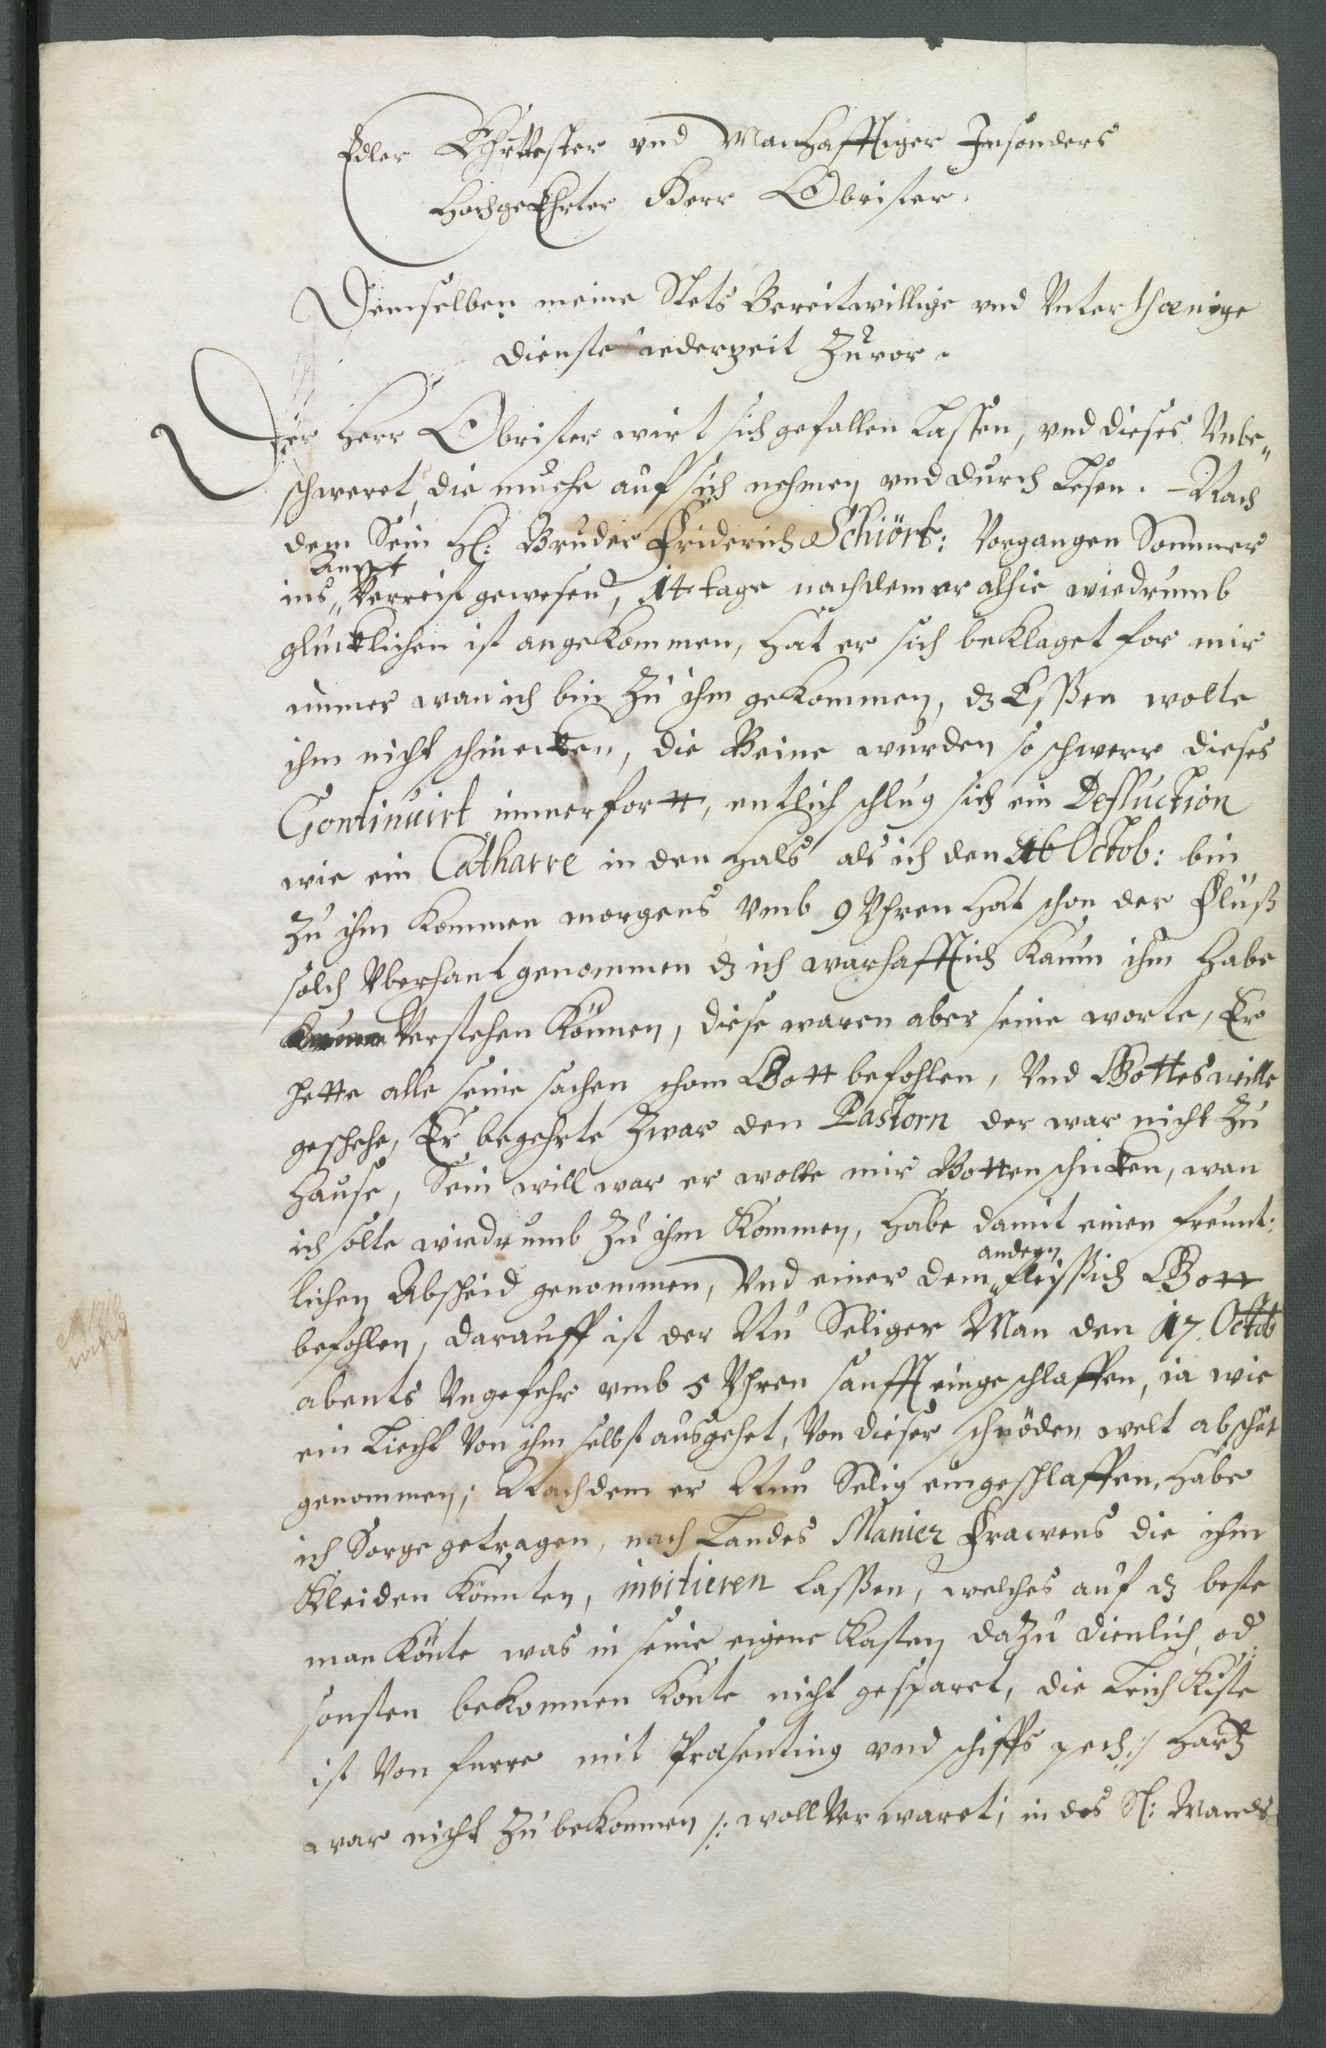 Edler Ehrvester vnd Manhafftiger Insonders
Hochgeehrter Herr Obrister.
Demselben meine Stets Bereitwillige vnd Vnterthænige
dienste iederzeit Zuvor.
Der Herr Obrister wirt sich gefallen Lassen, vnd dieses Vnbe„
schweret, die muehe auf sich nehmen vnd durch Lesen. Nach
dem Sein H: Bruder Friderich Schiört: Vorgangen Sommer
ins „ Verreist gewesen, 14 tage nachdem er alhie wiedrumb
glücklichen ist angekommen, hat er sich beklaget for mir
immer wan ich bin Zu ihm gekommen, dz Essen wolte
ihm nicht schmecken, die Beine wurden so schwer dieses
Continuirt immerfortt, entlich schlug sich ein Defluction
wie ein Catharre in den Hals als ich den 16 Octob: bin
Zu ihm kommen morgens vmb 9 Vhren hat schon der Fluß
solch Vberhant genommen dz ich warhafftich kaum ihm habe
Verstehen können, diese waren aber seine worte, Er
hette alle seine sachen schon Gott befohlen, Vnd Gottes wille
geschehe, Er begehrte Zwar den Pastorn der war nicht Zu
Hause, Sein will war er wolte mir Botten schicken, wan
ich solte wiedrumb Zu ihm kommen, habe damit einen freunt:
lichen Abscheid genommen, Vnd einer dem „ andern fleissich Gott
befohlen, darauff ist der Nu Seliger Man den 17. Octob
abents Vngefehr vmb 5 Vhren sanfft eingeschlaffen, ia wie
ein Liecht Von ihm selbst ausgehet, Von dieser schnöden welt abschit
genommen; Nachdem er Nun Selig eingeschlaffen, habe
ich Sorge getragen, nach Landes Manier Frawens die ihm
Kleiden könnten, invitieren lassen, welches auf dz beste
man könte was in seine eigene Kasten dazu dienlich, od
sonsten bekommen könte nicht gesparet, die Leich Kiste
ist Von furre mit Præsenting vnd schiffs pech :/ hartz
war nicht Zu bekommen /: woll Verwaret; in des Sl: Mandes